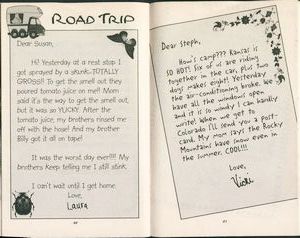 ROAD TRIP
Dear Susan,
Hi! Yesterday at a rest stop I
got sprayed by a skunk—TOTALLY
GROSS!!! To get the smell out they
poured tomato juice on me!! Mom
said it's the way to get the smell out,
but it was so YUCKY. After the
tomato juice, my brothers rinsed me
off with the hose! And my brother
Billy got it all on tape!
It was the worst day ever!!! My
brothers keep telling me I still stink.
I can't wait until I get home.
Love,
Laura
Dear Steph,
How's camp??? Kansas is
SO HOT! Six of us are riding
together in the car, plus two
dogs makes eight! Yesterday
the air-conditioning broke. We
have all the windows open
and it is so windy I can hardly
write! When we get to
Colorado I'll send you a post-
card. My mom says the Rocky
Mountains have snow even in
the summer. COOL!!!
Love,
Vicki